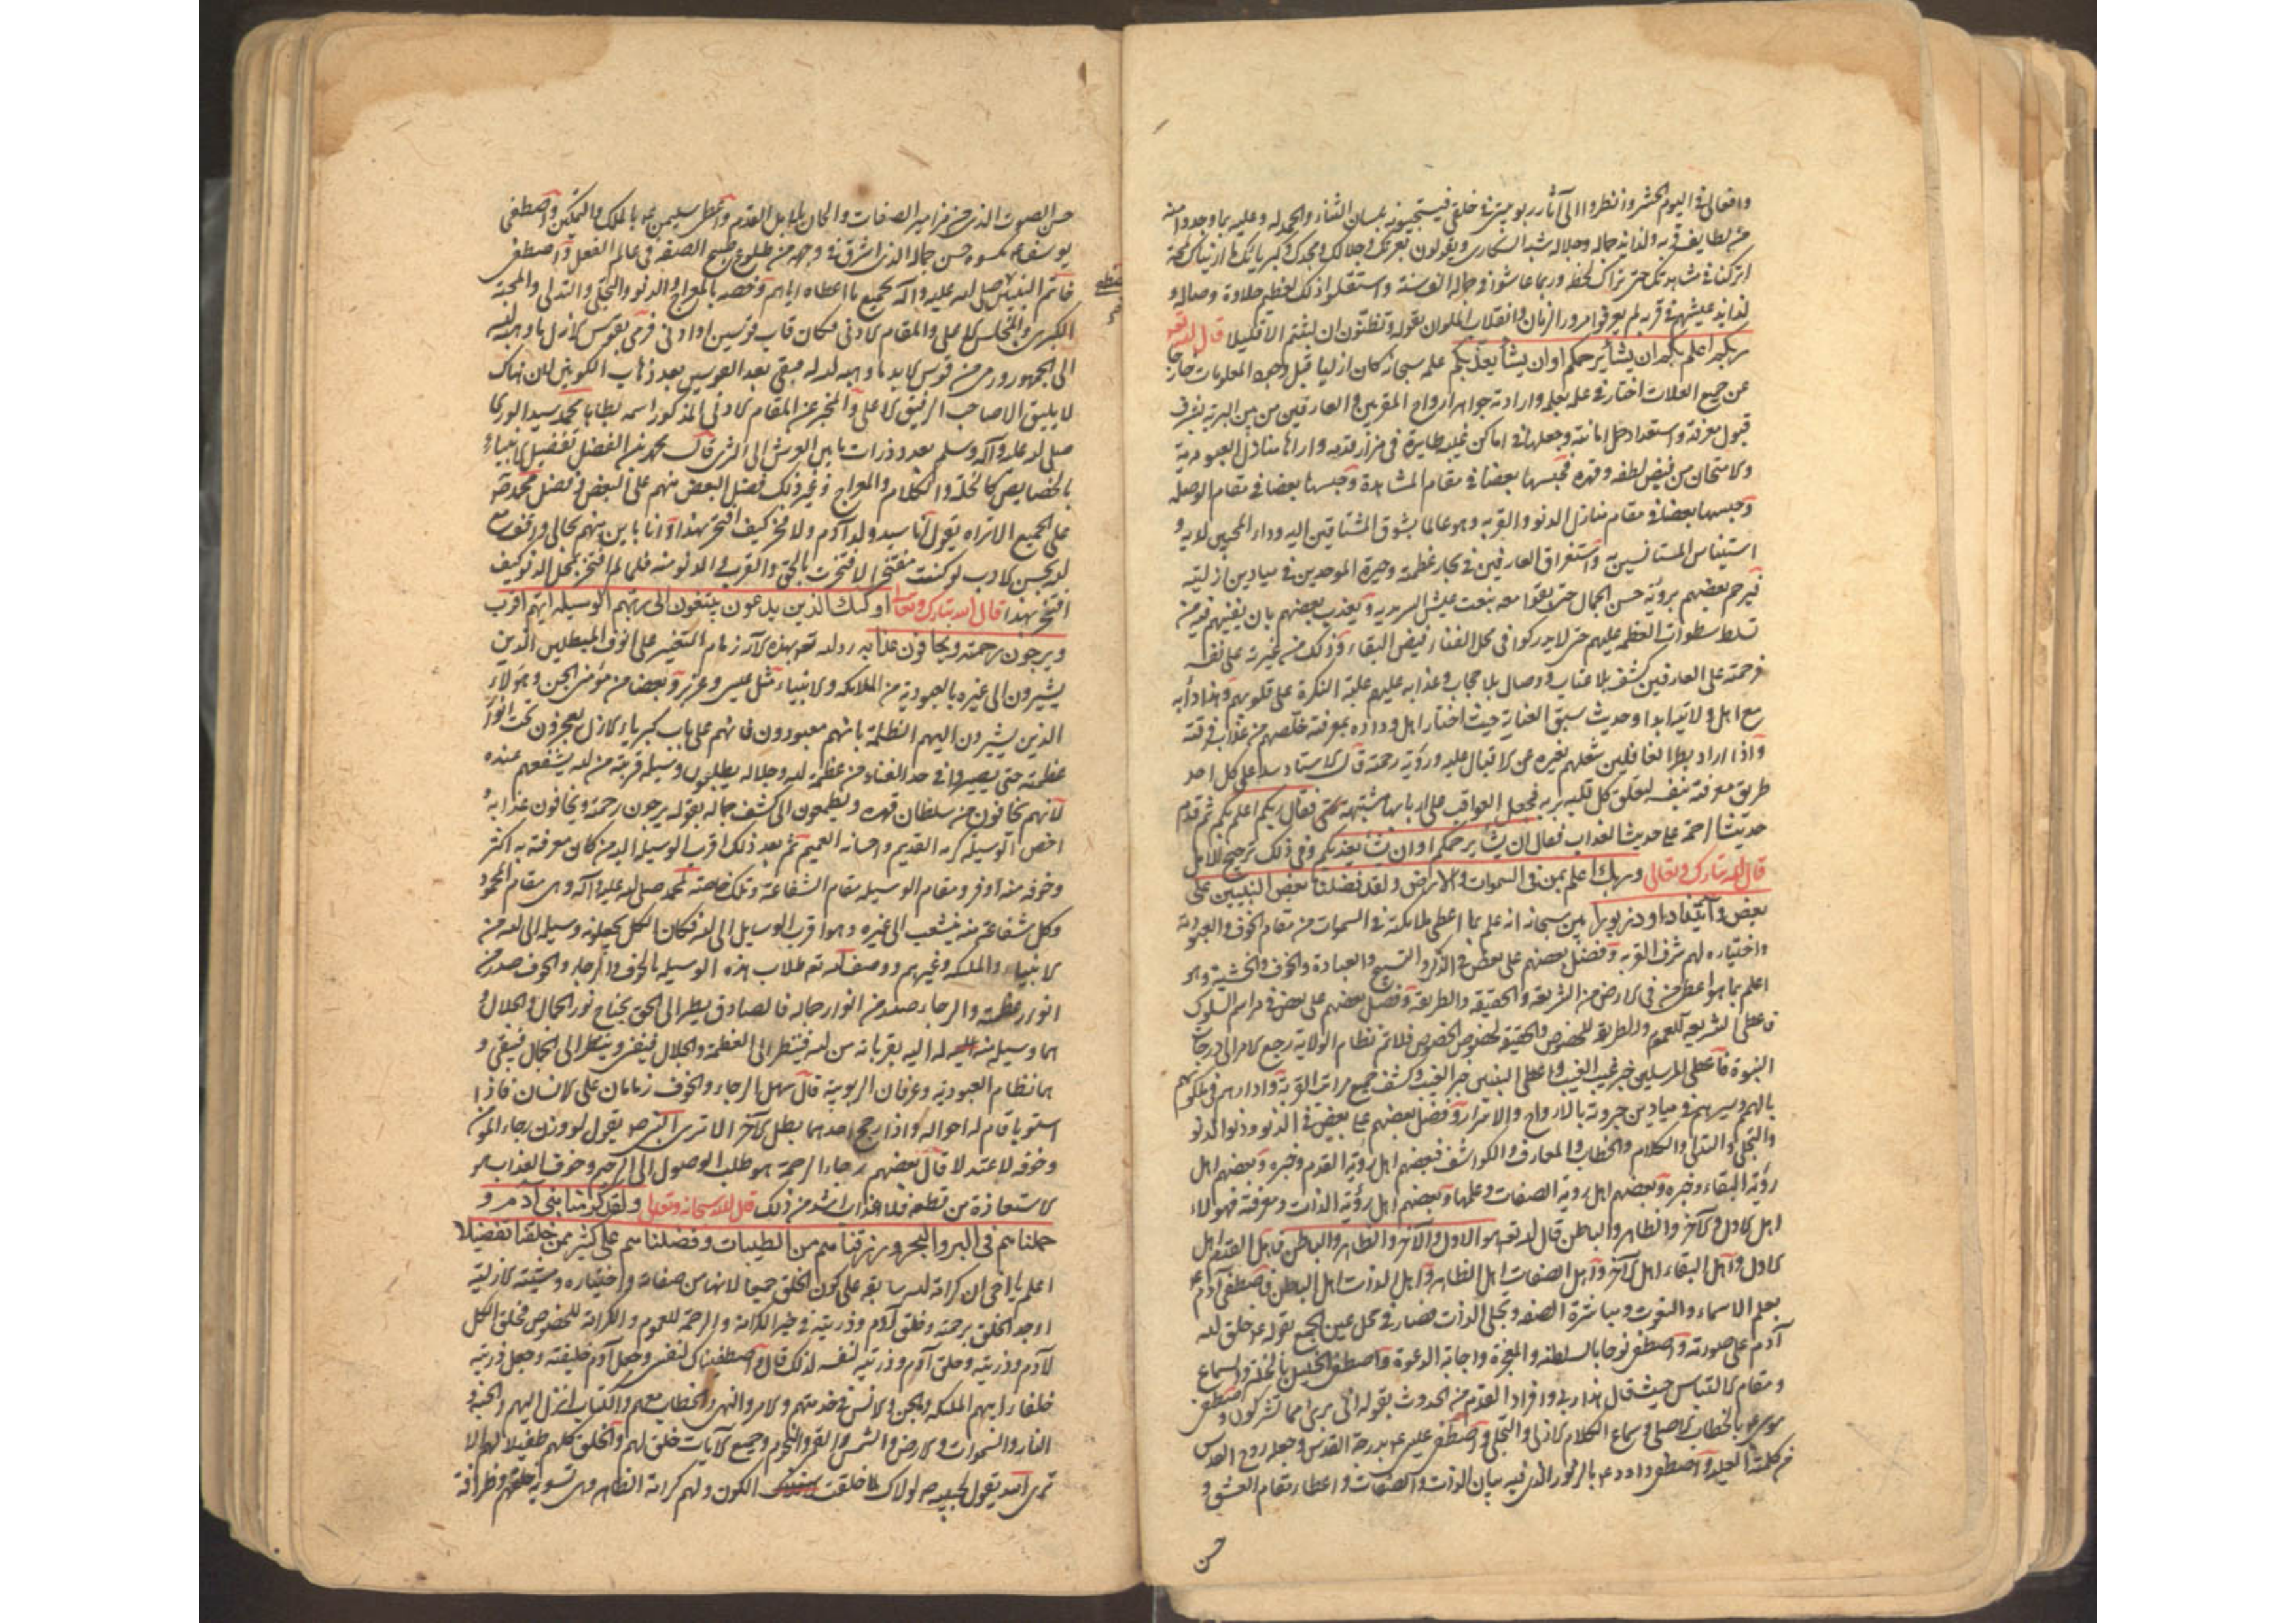 وافعالى فى اليوم الحشر ونظروا الى آثار ربوبيتى فى خلقى فيستجيبونه بلسان الثناء والحمد له وعليه بما وجدوا منه
من لطايف قربه ولذايذ جماله وجلاله شبه السكارى ويقولون بعزتك وجلالك ومجدك وكبريائك
اتركنا فى مشاهدتك حتى نراك لحظة وربما عاشوا فى جماله الف سنة واستقلوا ذلك لعظم حلاوة وصاله و
لذايذ عيشهم فى قربه لم يعرفوا مرور الزمان وانقلاب الملوان بقوله وتظنون ان لبثتم الا قليلا قال الله تعه
ربكم اعلم بكم ان يشأ يرحمكم او ان يشأ يعذبكم علمه سبحانه كان ازليا قبل وجود المعلومات خارجا
عن جميع العلات اختار فى علمه بعلمه وارادته جواهر ارواح المقربين والعارفين من بين البرية بشرف
قبول معرفته واستعداد حمل امانته وجعلها فى اماكن غيبه طايرة فى مزار قدمه واراها منازل العبودية
والامتحان من فيض لطفه وقهره فحبسها بعضا فى مقام المشاهدة وحبسها بعضا فى مقام الوصلة
وحبسها بعضا فى مقام منازل الدنو والقربة وهو عالما بشوق المشتاقين اليه ووداد المحبين لديه و
استيناس المستانسين به واستغراق العارفين فى بحار عظمته وحيرة الموحدين فى ميادين ازليته
فيرحم بعضهم برؤية حسن الجمال حتى بقوا معه بنعت عيش السرمدية ويعذب بعضهم بان يفنيهم فيه من
تسلط سطوات العظمة عليهم حتى لا يدركوا فى محل الفناء فيض البقاء وذلك من غيرته على نفسه
فرحمته على العارفين كشف بلا عتاب ووصال بلا حجاب وعذابه عليهم غلبة النكرة على قلوبهم وهذا دأبه
مع اهل ولايته ابدا وحديث سبق العناية حيث اختار اهل وداده بمعرفته خلصهم من عذاب فرقته
واذا اراد بطرا الغافلين شغلهم بغيره عن الاقبال عليه ورؤية رحمته قال الاستاد سد على كل احد
طريق معرفته بنفسه ليعلق كل قلبه بربه فجعل العواقب على اربابها مشتبهة فقال ربكم اعلم بكم ثم قدم
حديث الرحمة على حديث العذاب فقال ان يشأ يرحمكم او ان يشأ يعذبكم وفى ذلك ترجيح للامل
قال الله تبارك وتعالى وربك اعلم بمن فى السموات والارض ولقد فضلنا بعض النبيين على
بعض وآتينا داود زبورا بين سبحانه انه علم بما اعطى ملائكته فى السموات من مقام الخوف والعبودية
واختياره لهم شرف القربة وفضل بعضهم على بعض فى الذكر والتسبيح والعبادة والخوف والخشية وهو
اعلم بما هو اعطى من فى الارض من الشريعة والحقيقة والطريقة وفضل بعضهم على بعض فى مراسم السلوك
فاعطى الشريعة للعموم والطريقة للخصوص والحقيقة لخصوص الخصوص فلما تم نظام الولاية رجع الامر الى درجات
النبوة فاعطى المرسلين خبر غيب الغيب واعطى النبيين خبر الغيب وكشف جميع مراتب القربة وادارهم فى ملكوته
بالهمم وسيرهم فى ميادين جبروته بالارواح والاسرار وفضل بعضهم على بعض فى الدنو ودنو الدنو
والتجلى والتدلى والكلام والخطاب والمعارف والكواشف فبعضهم اهل رؤية القدم وخبره وبعضهم اهل
رؤية البقاء وخبره وبعضهم اهل رؤية الصفات وعلمها وبعضهم اهل رؤية الذات ومعرفته فهولاء
اهل الاول والآخر والظاهر والباطن قال الله تعه هو الاول والآخر والظاهر والباطن فاهل القدم اهل
الاول واهل البقاء اهل الآخر واهل الصفات اهل الظاهر واهل الذات اهل الباطن فاصطفى آدم ع
بعلم الاسماء والنعوت ومباشرة الصفة وتجلى الذات فصار فى محل عين الجمع بقوله ع خلق الله
آدم على صورته واصطفى نوحا بالسلطنة والمعجزة واجابة الدعوة واصطفى الخليل بالخلة والسماع
ومقام الالتباس حيث قال هذا ربى وافراد القدم من الحدوث بقوله انى برئ مما تشركون واصطفى
موسى ع بالخطاب الاصلى وسماع الكلام الازلى والتجلى واصطفى عيسى ع بدرجة القدس وجعله روح القدس
من كلمته العليا واصطفى داود ع بالزبور الذى فيه بيان الذات والصفات واعطاه مقام العشق و
حسن
حسن الصوت الذى من مزامير الصفات والحان بلابل القدم واعطى سليمن ع بالملك والتمكين واصطفى
يوسف ع بكسوة حسن جماله الذى اشرق فى وجهه من طلوع صبح الصفة فى عالم الفعل واصطفى
خاتم النبيين صلى الله عليه وآله بجميع ما اعطاه اياهم وخصه بالمعراج والدنو والتجلى والتدلى والمحبة
الكبرى والمجلس الاعلى والمقام الادنى فكان قاب قوسين او ادنى فرمى بقوس الازل ما وهبه الله
الى الجمهور ورمى من قوس الابد ما وهبه الله له فبقى بعد القوسين بعد ذهاب الكونين لان هناك
لا يليق الا صاحب الرفيق الاعلى والمخبر عن المقام الادنى المذكور اسمه بطابا محمد سيد الورى
صلى الله عليه وآله وسلم بعدد ذرات ما بين العرش الى الثرى قال محمد بن الفضل تفضيل الانبياء
بالخصايص كالخلة والكلام والمعراج وغير ذلك فضل البعض منهم على البعض فى فضل محمد ص
على الجميع الا تراه يقول انا سيد ولد آدم ولا فخر كيف افتخر بهذا وانا باين منهم بحالى واقف مع
الله بحسن الادب لو كنت مفتخرا لافتخرت بالحق والقرب والدنو منه فلما لم افتخر بمحل الدنو كيف
افتخر بهذا قال الله تبارك وتعالى اولئك الذين يدعون يبتغون الى ربهم الوسيلة ايهم اقرب
ويرجون رحمته ويخافون عذابه رد الله تعه بهذه الآية زمام التغير على انوف المبطلين الذين
يشيرون الى غيره بالعبودية من الملائكة والانبياء مثل عيسى وعزير وبعضا من مؤمنى الجن وهؤلاء
الذين يشيرون اليهم الظلمة بانهم معبودون فانهم على باب كبرياء الازل يعجزون تحت انوار
عظمته حتى يصيروا فى حد الفناء من عظمة الله وجلاله يطلبون وسيلة قربة من الله يشفعهم عنده
لانهم يخافون من سلطان قهره ويطمعون الى كشف جماله بقوله يرجون رحمته ويخافون عذابه و
اخص الوسيلة كرمه القديم واحسانه العميم ثم بعد ذلك اقرب الوسيلة اليه من كان معرفته به اكثر
وخوفه منه اوفر ومقام الوسيلة مقام الشفاعة وتلك خاصته لمحمد صلى الله عليه وآله وهى مقام المحمود
وكل شفاعة منه ينشعب الى غيره وهو اقرب الوسايل الى الله فكان الكل يجعلونه وسيلة الى الله من
الانبياء والملئكة وغيرهم ووصف الله تعه طلاب هذه الوسيلة بالخوف والرجاء والخوف صدر من
انوار عظمته والرجاء صدر من انوار جماله فالصادق يطير الى الحق بجناح نور الجمال والجلال و
هما وسيلة منه له اليه يقربانه من الله فينظر الى العظمة والجلال فيفنى وينظر الى الجمال فيبقى و
هما نظام العبودية وعرفان الربوبية قال سهل الرجاء والخوف زمامان على الانسان فاذا
استويا قام له احواله واذا رجح احدهما بطل الآخر الا ترى النبى ص يقول لو وزن رجاء المؤمن
وخوفه لاعتدلا قال بعضهم رجاء الرحمة هو طلب الوصول الى الرحيم وخوف العذاب هو
الاستعاذة من قطعه فلا عذاب اشد من ذلك قال الله سبحانه وتعالى ولقد كرمنا بنى آدم و
حملناهم فى البر والبحر ورزقناهم من الطيبات وفضلناهم على كثير ممن خلقنا تفضيلا
اعلم يا اخى ان كرامة الله سابقة على كون الخلق جميعا لانها من صفاته واختياره ومشيته الازلية
اوجد الخلق برحمته وخلق آدم وذريته فى حيز الكرامة والرحمة للعموم والكرامة للخصوص فخلق الكل
لآدم وذريته وخلق آدم وذريته لنفسه لذلك قال واصطفيتك لنفسى وجعل آدم خليفته وجعل ذريته
خلفاء ابيهم الملئكة والجن والانس فى خدمتهم والامر والنهى والخطاب معهم والكتاب انزل اليهم والجنة و
النار والسموات والارض والشمس والقمر والنجوم وجميع الآيات خلق لهم والخلق كلهم طفيل لهم الا
ترى الله يقول لحبيبه ص لولاك لما خلقت الكون ولهم كرامة الظاهر وهى تسوية خلقهم وظرافة